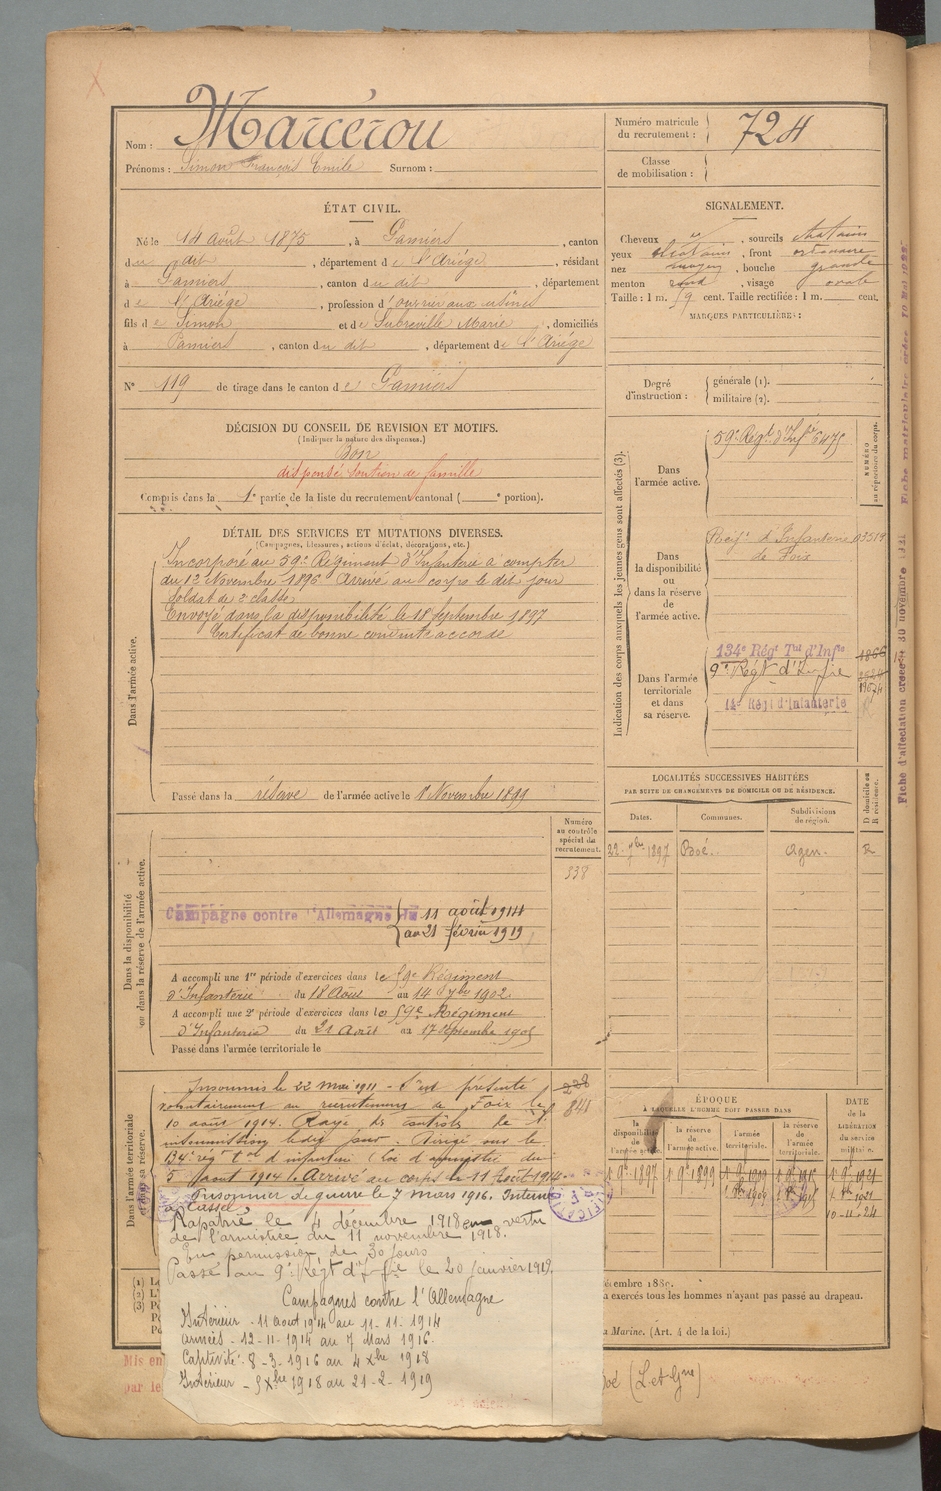 Nom : Marcérou
Prénoms : Simon François Emile Surnom :
ÉTAT CIVIL.
Né le 14 août 1875, à Pamiers, canton
du dit, département de l'Ariège, résidant
à Pamiers, canton du dit, département
de l'Ariège, profession d'ouvrier aux usines
fils de Simon et de Subreville Marie, domiciliés
à Pamiers, canton du dit, département de l'Ariège
N° 119 de tirage dans le canton de Pamiers
DÉCISION DU CONSEIL DE REVISION ET MOTIFS.
(Indiquer la nature des dispenses.)
Bon
dispensé soutien de famille
Compris dans la 1e partie de la liste du recrutement cantonal ( e portion).
DÉTAIL DES SERVICES ET MUTATIONS DIVERSES.
(Campagnes, blessures, actions d'éclat, décorations, etc.)
Dans l'armée active.
Incorporé au 59e Régiment d'Infanterie à compter
du 12 Novembre 1896 Arrivé au corps le dit jour
soldat de 2e classe
Envoyé dans la disponibilité le 18 septembre 1897
Certificat de bonne conduite accordé
Passé dans la réserve de l'armée active le 1 Novembre 1899
Dans la disponibilité
ou dans la réserve de l'armée active.
Numéro
au contrôle
spécial du
recrutement.
338
Campagne contre l'Allemagne du 11 août 1914
au 21 février 1919
A accompli une 1re période d'exercices dans le 59e Régiment
d'Infanterie du 18 Août au 14 7bre 1902.
A accompli une 2e période d'exercices dans le 59e Régiment
d'Infanterie du 21 Août au 17 Septembre 1905
Passé dans l'armée territoriale le
Dans l'armée territoriale
et dans sa réserve.
Insoumis le 22 mai 1911 - S'est présenté
volontairement au recrutement de Foix le
10 août 1914. Rayé des contrôles de l'
insoumission ledit jour. Dirigé sur le
134e rég. ter. d'infanterie (loi d'amnistie du
5 août 1914). Arrivé au corps le 11 août 1914.
228
841
Prisonnier de guerre le 7 mars 1916. Interné
à Cassel
Rapatrié le 4 décembre 1918 en vertu
de l'armistice du 11 novembre 1918.
En permission de 30 jours
Passé au 9e Régt d'Infie le 20 janvier 1919.
Campagnes contre l'Allemagne
Intérieur - 11 août 1914 au 11-11-1914
armées - 12-11-1914 au 7 Mars 1916.
Captivité. 8-3-1916 au 4 Xbre 1918
Intérieur - 5 Xbre 1918 au 21-2-1919
(1)
(2)
(3)
Mis en
par le
Numéro matricule
du recrutement : 724
Classe
de mobilisation :
SIGNALEMENT.
Cheveux, sourcils chatains
yeux chatains, front ordinaire
nez moyen, bouche grande
menton rond, visage ovale
Taille : 1 m. 59 cent. Taille rectifiée : 1 m. cent.
MARQUES PARTICULIÈRES :
Degré
d'instruction :
générale (1).
militaire (2).
Indication des corps auxquels les jeunes gens sont affectés (3).
NUMÉRO
au répertoire du corps.
Dans
l'armée active.
59e Régt d'Infie 6475
Dans
la disponibilité
ou
dans la réserve
de
l'armée active.
Régt d'Infanterie 03519
de Foix
Dans l'armée
territoriale
et dans
sa réserve.
134e Régt Tal d'Infie
9e Régt d'Infie
14e Régt d'Infanterie
LOCALITÉS SUCCESSIVES HABITÉES
PAR SUITE DE CHANGEMENTS DE DOMICILE OU DE RÉSIDENCE.
Dates. Communes. Subdivisions
de région.
D domicile ou
R résidence.
22 7bre 1897 Boé. Agen. R
ÉPOQUE
À LAQUELLE L'HOMME DOIT PASSER DANS
la
disponibilité
de
l'armée active.
la réserve
de
l'armée active.
l'armée
territoriale.
la réserve
de
l'armée
territoriale.
DATE
de la
LIBÉRATION
du service
militaire.
1 9bre 1897 1 9bre 1899 1 9bre 1909 1 9bre 1915 1 9bre 1921
10-11-24
décembre 1889.
à exercés tous les hommes n'ayant pas passé au drapeau.
la Marine. (Art. 4 de la loi.)
Boé (L-et-Gne)